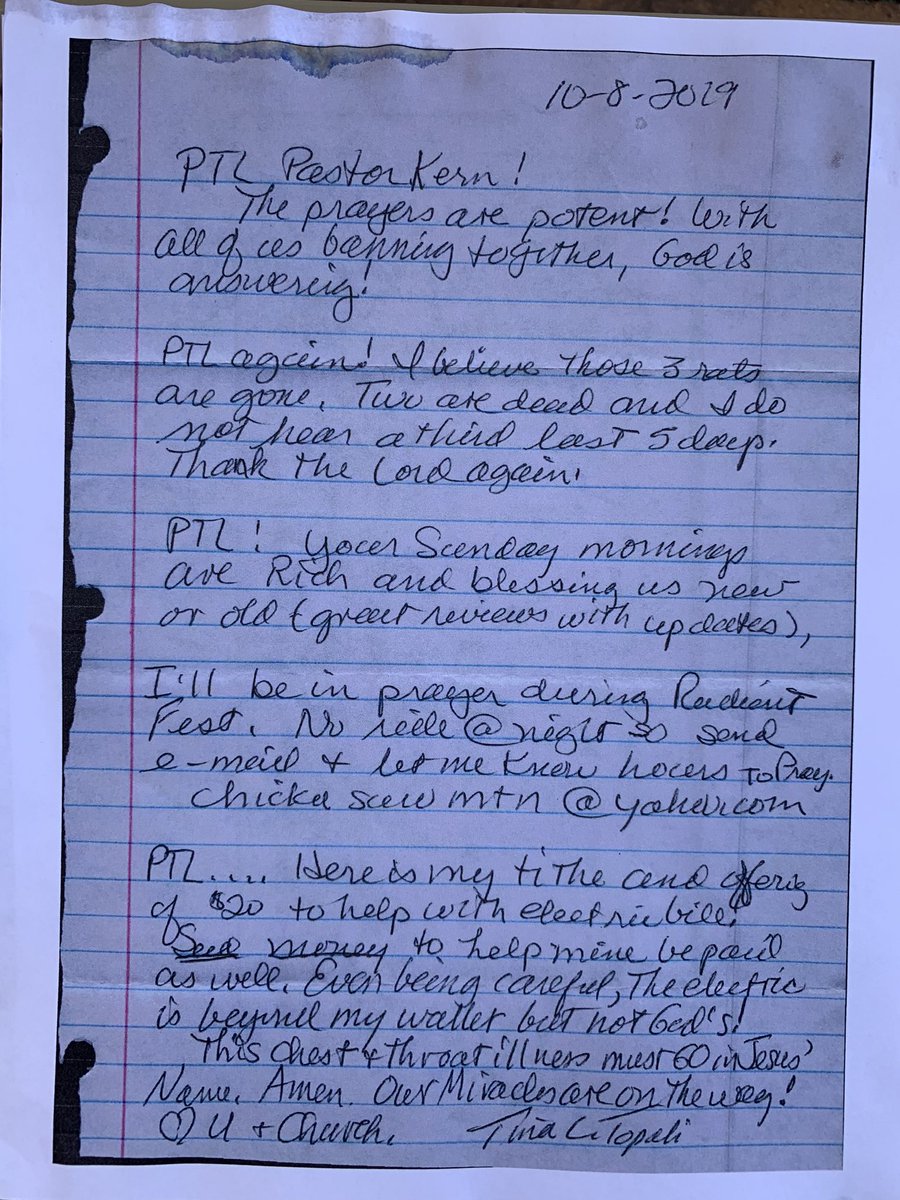 10-8-2019
PTL Pastor Kern!
The prayers are potent! With
all of us banning together, God is
answering!
PTL again! I believe those 3 rats
are gone. Two are dead and I do
not hear a third last 5 days.
Thank the Lord again!
PTL! Your Sunday mornings
are Rich and blessing us new
or old (great reviews with updates),
I'll be in prayer during Radiant
Fest. No ride @ night so send
e-mail + let me know hours to Pray.
PTL.... Here is my tithe and offering
of $20 to help with electric bill!
money to help mine be paid
as well. Even being careful, The electric
is beyond my wallet but not God's!
This chest + throat illness must GO in Jesus'
Name. Amen. Our Miracles are on the way!
U + Church. Tina